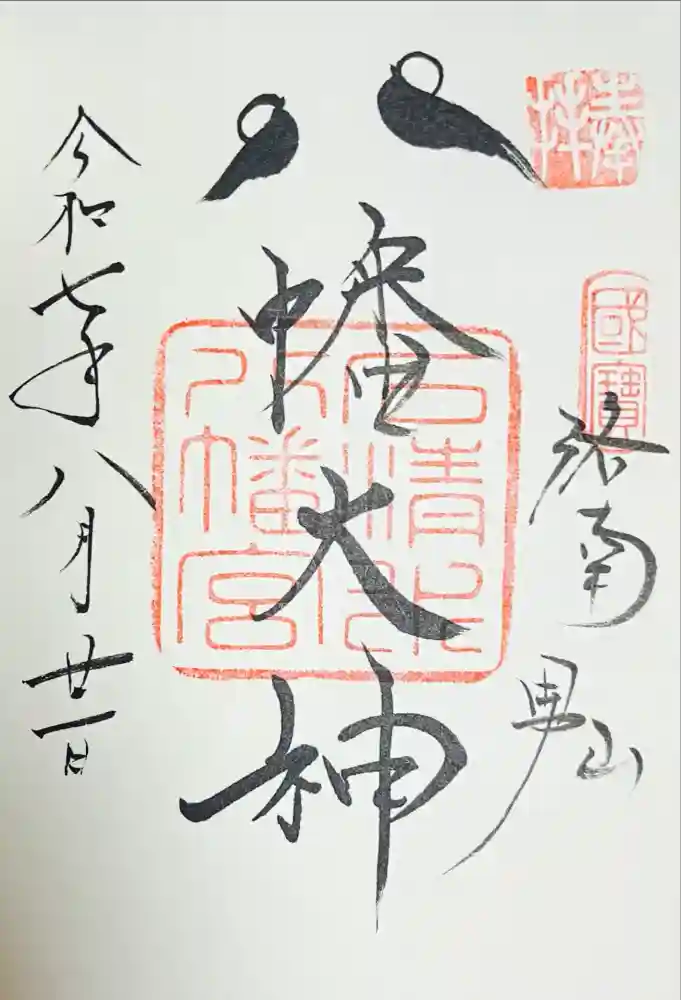 奉拝
國寶
洛南
男山
八幡大神
石清水
八幡宮
令和七年八月廿一日